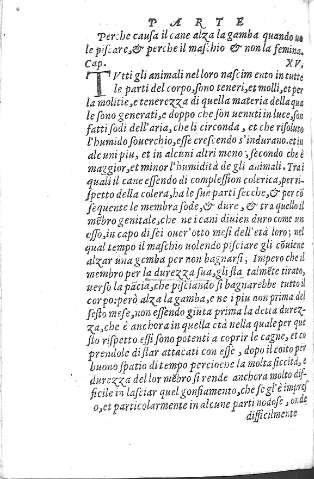 PARTE
Perche causa il cane alza la gamba quando uo
le pisciare, & perche il maschio & non la femina.
Cap. XV.
TVtti gli animali nel loro nascimento in tutte
le parti del corpo, sono teneri, et molli, et per
la molitie, e tenerezza di quella materia della qua
le sono generati, e doppo che son uenuti in luce, son
fatti sodi dell'aria, che li circonda, et che risoluto
l'humido souerchio, esse crescendo s'indurano, et in
alcuni piu, et in alcuni altri meno, secondo che è
maggior, et minor l'humidità de gli animali. Tra i
quali il cane essendo di complession colerica, per ri-
spetto della colera, ha le sue parti secche, & per cō
sequente le membra sode, & dure, & tra quello il
mēbro genitale, che ne i cani diuien duro come un
osso, in capo di sei ouer'otto mesi dell'età loro; nel
qual tempo il maschio uolendo pisciare gli cōuiene
alzar una gamba per non bagnarsi; Impero che il
membro per la durezza sua, gli sta talmēte tirato,
uerso la pācia, che pisciando si bagnarebbe tutto il
corpo: però alza la gamba, e ne i piu non prima del
sesto mese, non essendo giuta prima la detta durez-
za, che è anchora in quella età nella quale per que
sto rispetto essi sono potenti a coprir le cagne, et co
prendole di star attacati con esse, dopo il coito per
buono spatio di tempo percioche la molta siccità, e
durezza del lor mēbro si rende anchora molto dif-
ficile in lasciar quel gonfiamento, che se gl'è impres
o, et particolarmente in alcune parti nodose, onde
difficilmente